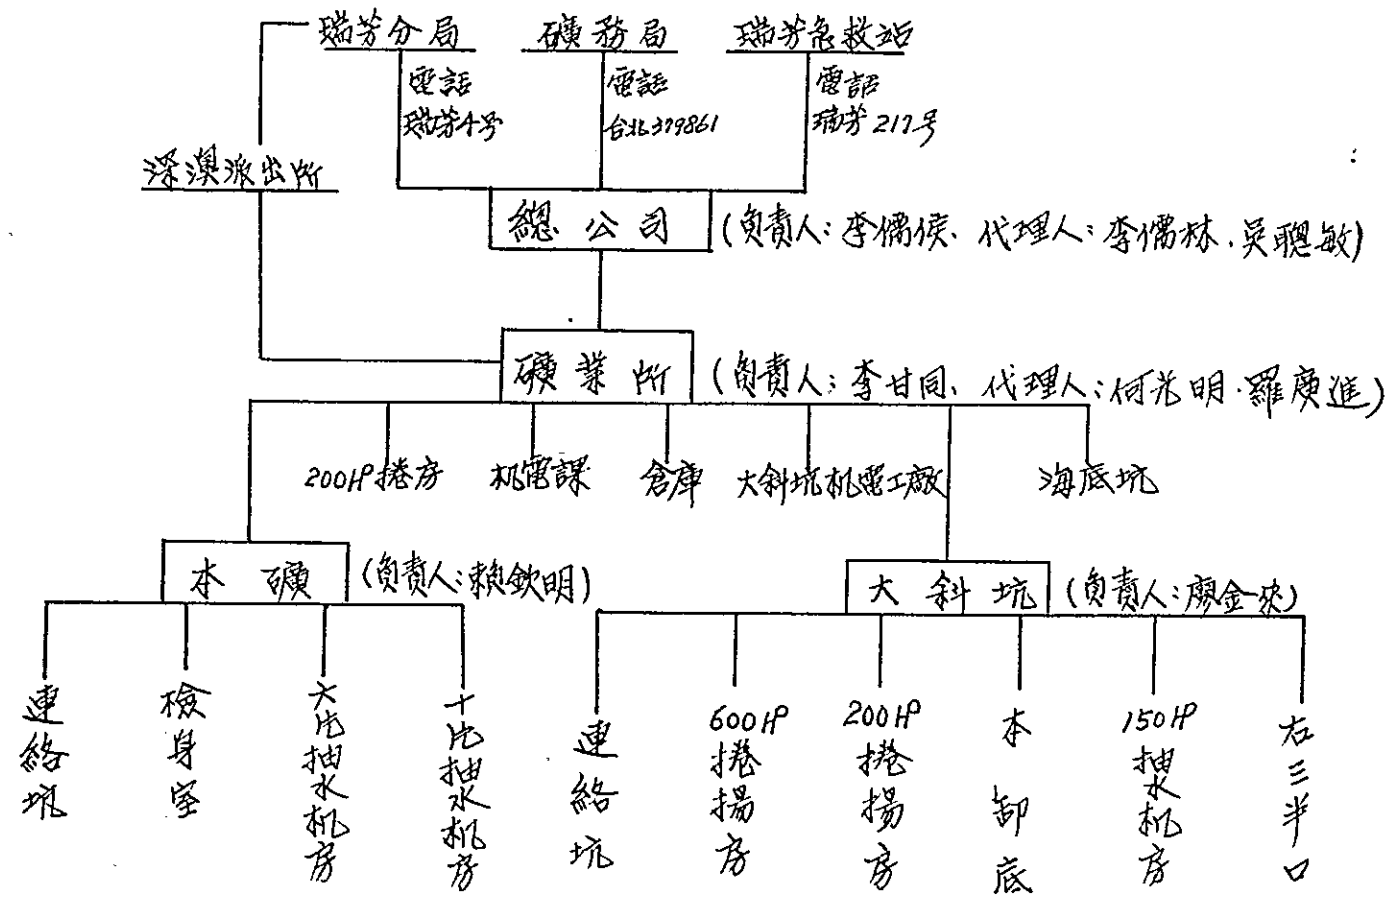 瑞芳分局 礦務局 瑞芳急救站
電話 電話 電話
瑞芳4号 台北379861 瑞芳217号
深澳派出所
總公司 (負責人:李儒侯、代理人:李儒林.吳聰敏)
礦業所 (負責人:李甘同、代理人:何光明.羅庚進)
200HP捲房 机電課 倉庫 大斜坑机電工廠 海底坑
本礦 (負責人:賴欽明)
大斜坑 (負責人:廖金來)
連絡坑
檢身室
六片抽水机房
十片抽水机房
連絡坑
600HP捲揚房
200HP捲揚房
本卸底
150HP抽水机房
右三半口